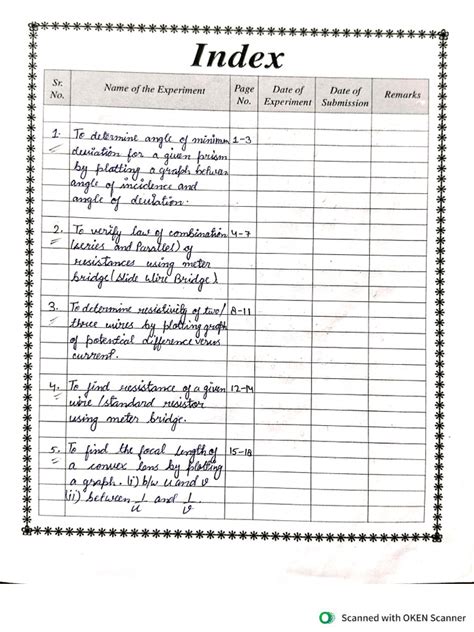 Index
Sr. No. Name of the Experiment Page No. Date of Experiment Date of Submission Remarks
1. To determine angle of minimum 1-3
deviation for a given prism
by plotting a graph between
angle of incidence and
angle of deviation.
2. To verify law of combination 4-7
(series and Parallel) of
resistances using meter
bridge (slide wire Bridge)
3. To determine resistivity of two/ 8-11
three wires by plotting graph
of potential difference versus
current.
4. To find resistance of a given 12-14
wire /standard resistor
using meter bridge.
5. To find the focal length of 15-18
a convex lens by plotting
a graph. (i) b/w u and v
(ii) between 1/u and 1/v.
Scanned with OKEN Scanner